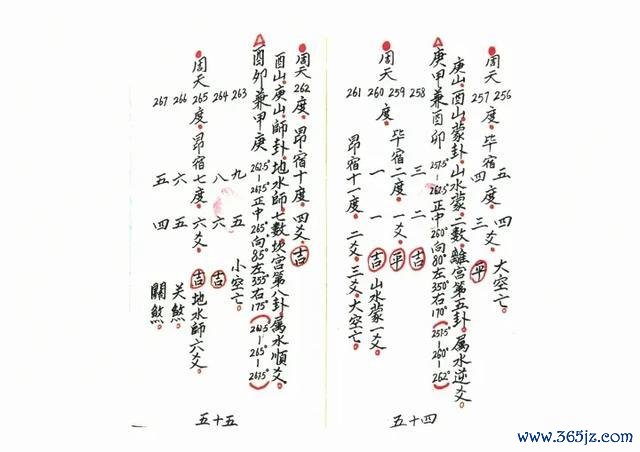 256 五 四 大空亡。
周天 257 度。毕宿 四 度。三 爻。平
庚山。酉山蒙卦。山水蒙。二数。離宮第五卦。属水逆爻。
庚甲兼酉卯 257.5°-262.5°正中260°向80°左350°右170°(257.5°-260°-262°)
258 三 二 吉
259 毕宿二度。一爻。平
周天 260 度。一 一 吉 山水蒙一爻。
261 昴宿十一度。二爻。三爻。大空亡。
五十四
周天 262度。昴宿十度。四爻。吉
酉山。庚山。師卦。地水師。七数。坎宮第八卦。属水順爻。
酉卯兼甲庚 262.5°-267.5°正中265°向85°左355°右175°(262.5°-265°-267.5°)
263 九 五 小空亡。
264 八 六 吉
周天 265度。昴宿七度。六爻。吉 地水師六爻。
266 六 五 关煞。
267 五 四 關煞。
五十五
www.365jz.com